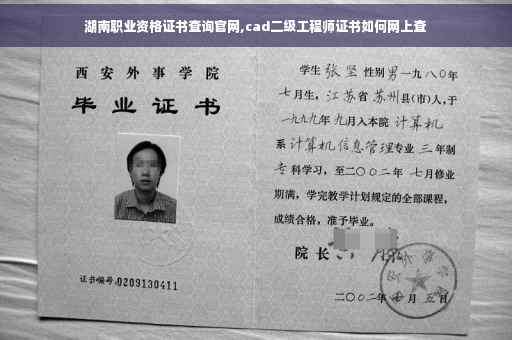 湖南职业资格证书查询官网,cad二级工程师证书如何网上查
西安外事学院
毕业证书
证书编号:0209130411
学生 张坚 性别 男 一九八〇年
七月生, 江苏省 苏州县(市)人,于
一九九九年 九月入本院 计算机
系 计算机信息管理 专业 三 年制
专科学习,至二〇〇二年 七月修业
期满,学完教学计划规定的全部课程,
成绩合格,准予毕业。
院长
二〇〇二年 月五日